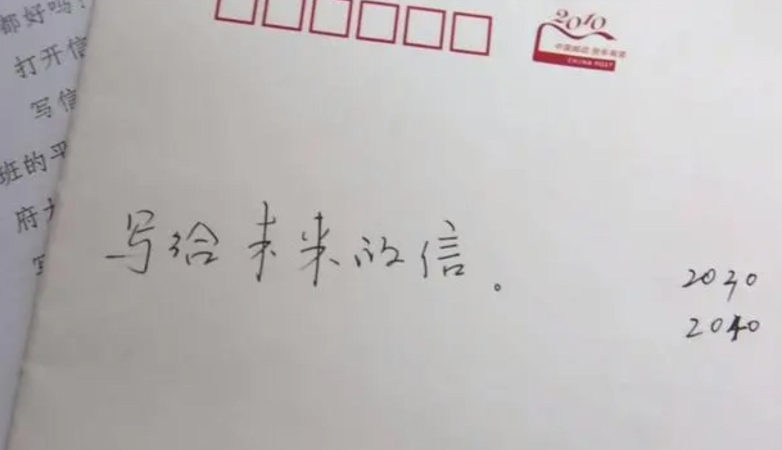 都好吗？
打开信
写信
班的平
府大
写
2010
中国邮政 贺年有奖
CHINA POST
写给未来的信。
2030
2040